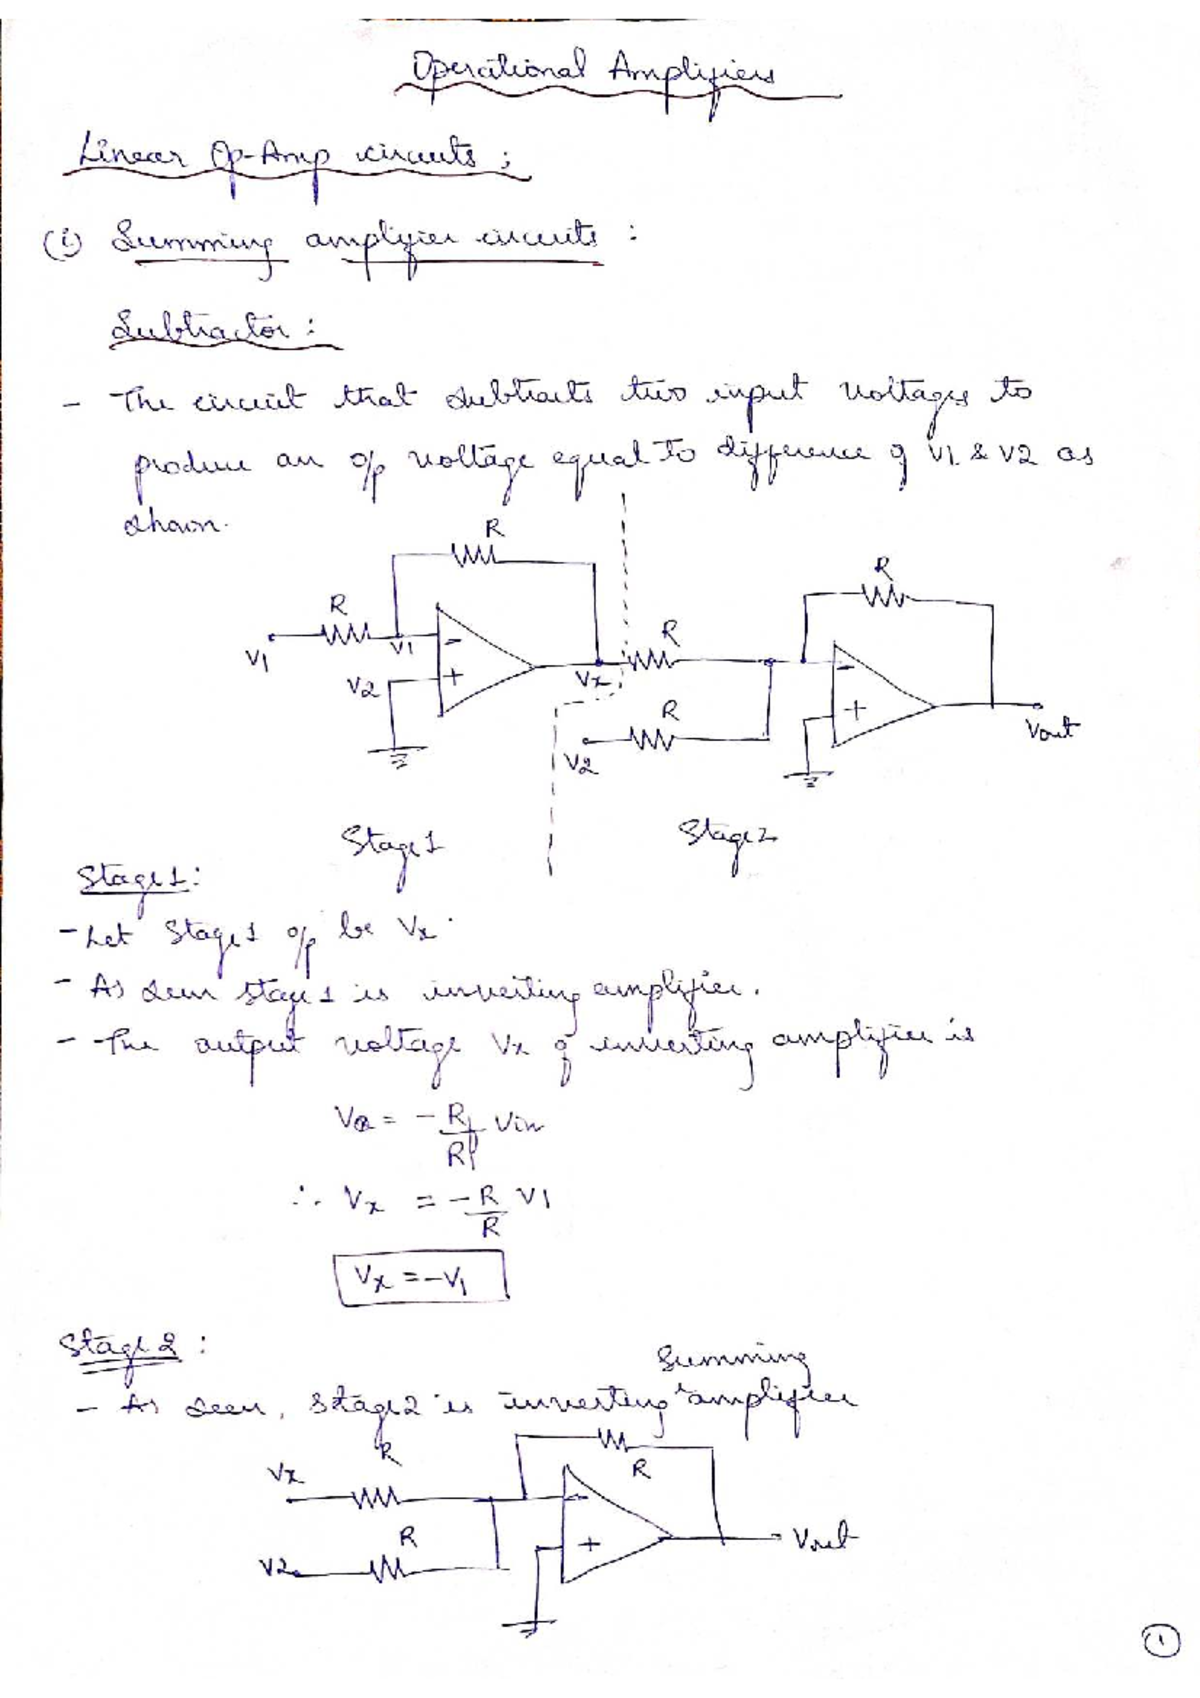 Operational Amplifiers
Linear Op-Amp circuits :
(i) Summing amplifier circuits :
Subtractor :
- The circuit that subtracts two input voltages to
produce an o/p voltage equal to difference of V1 & V2 as
shown.
R
R
R
R
V1
V1
V2
Vx
R
V2
Vout
Stage 1
Stage 2
Stage 1:
- Let Stage 1 o/p be Vx.
- As seen stage 1 is inverting amplifier.
- The output voltage Vx of inverting amplifier is
= - Rf Vin
R1
∴ Vx = - R V1
R
Vx = -V1
Stage 2 :
Summing
- As seen, Stage 2 is inverting ^ amplifier
R
Vx
R
R
V2
Vout
1